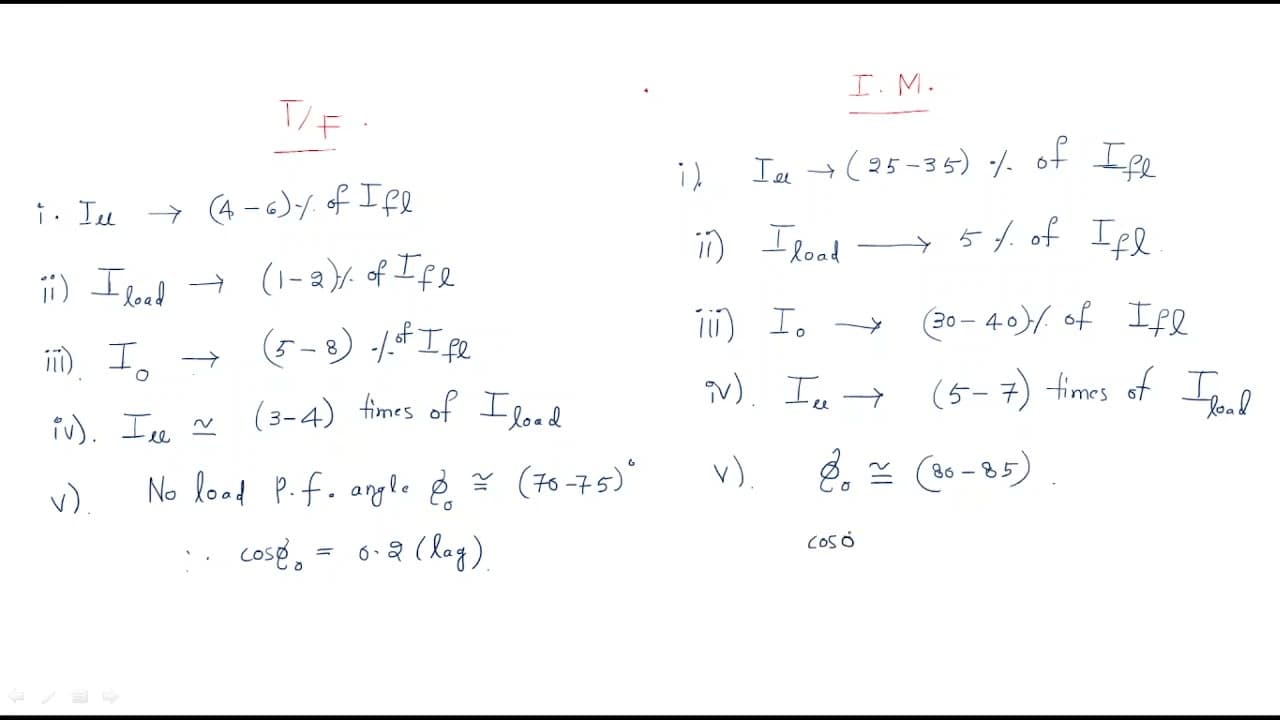 T/F.
i. Iμ → (4-6)% of Ifl
ii) Iload → (1-2)% of Ifl
iii). I₀ → (5-8) % of Ifl
iv). Iμ ≅ (3-4) times of Iload
v). No load p.f. angle ϕ₀ ≅ (70-75)°
∴ cosϕ₀ = 0.2 (lag).
I.M.
i). Iμ → (25-35) % of Ifl
ii) Iload → 5 % of Ifl.
iii) I₀ → (30-40)% of Ifl
iv). Iμ → (5-7) times of Iload
v). ϕ₀ ≅ (80-85).
cos